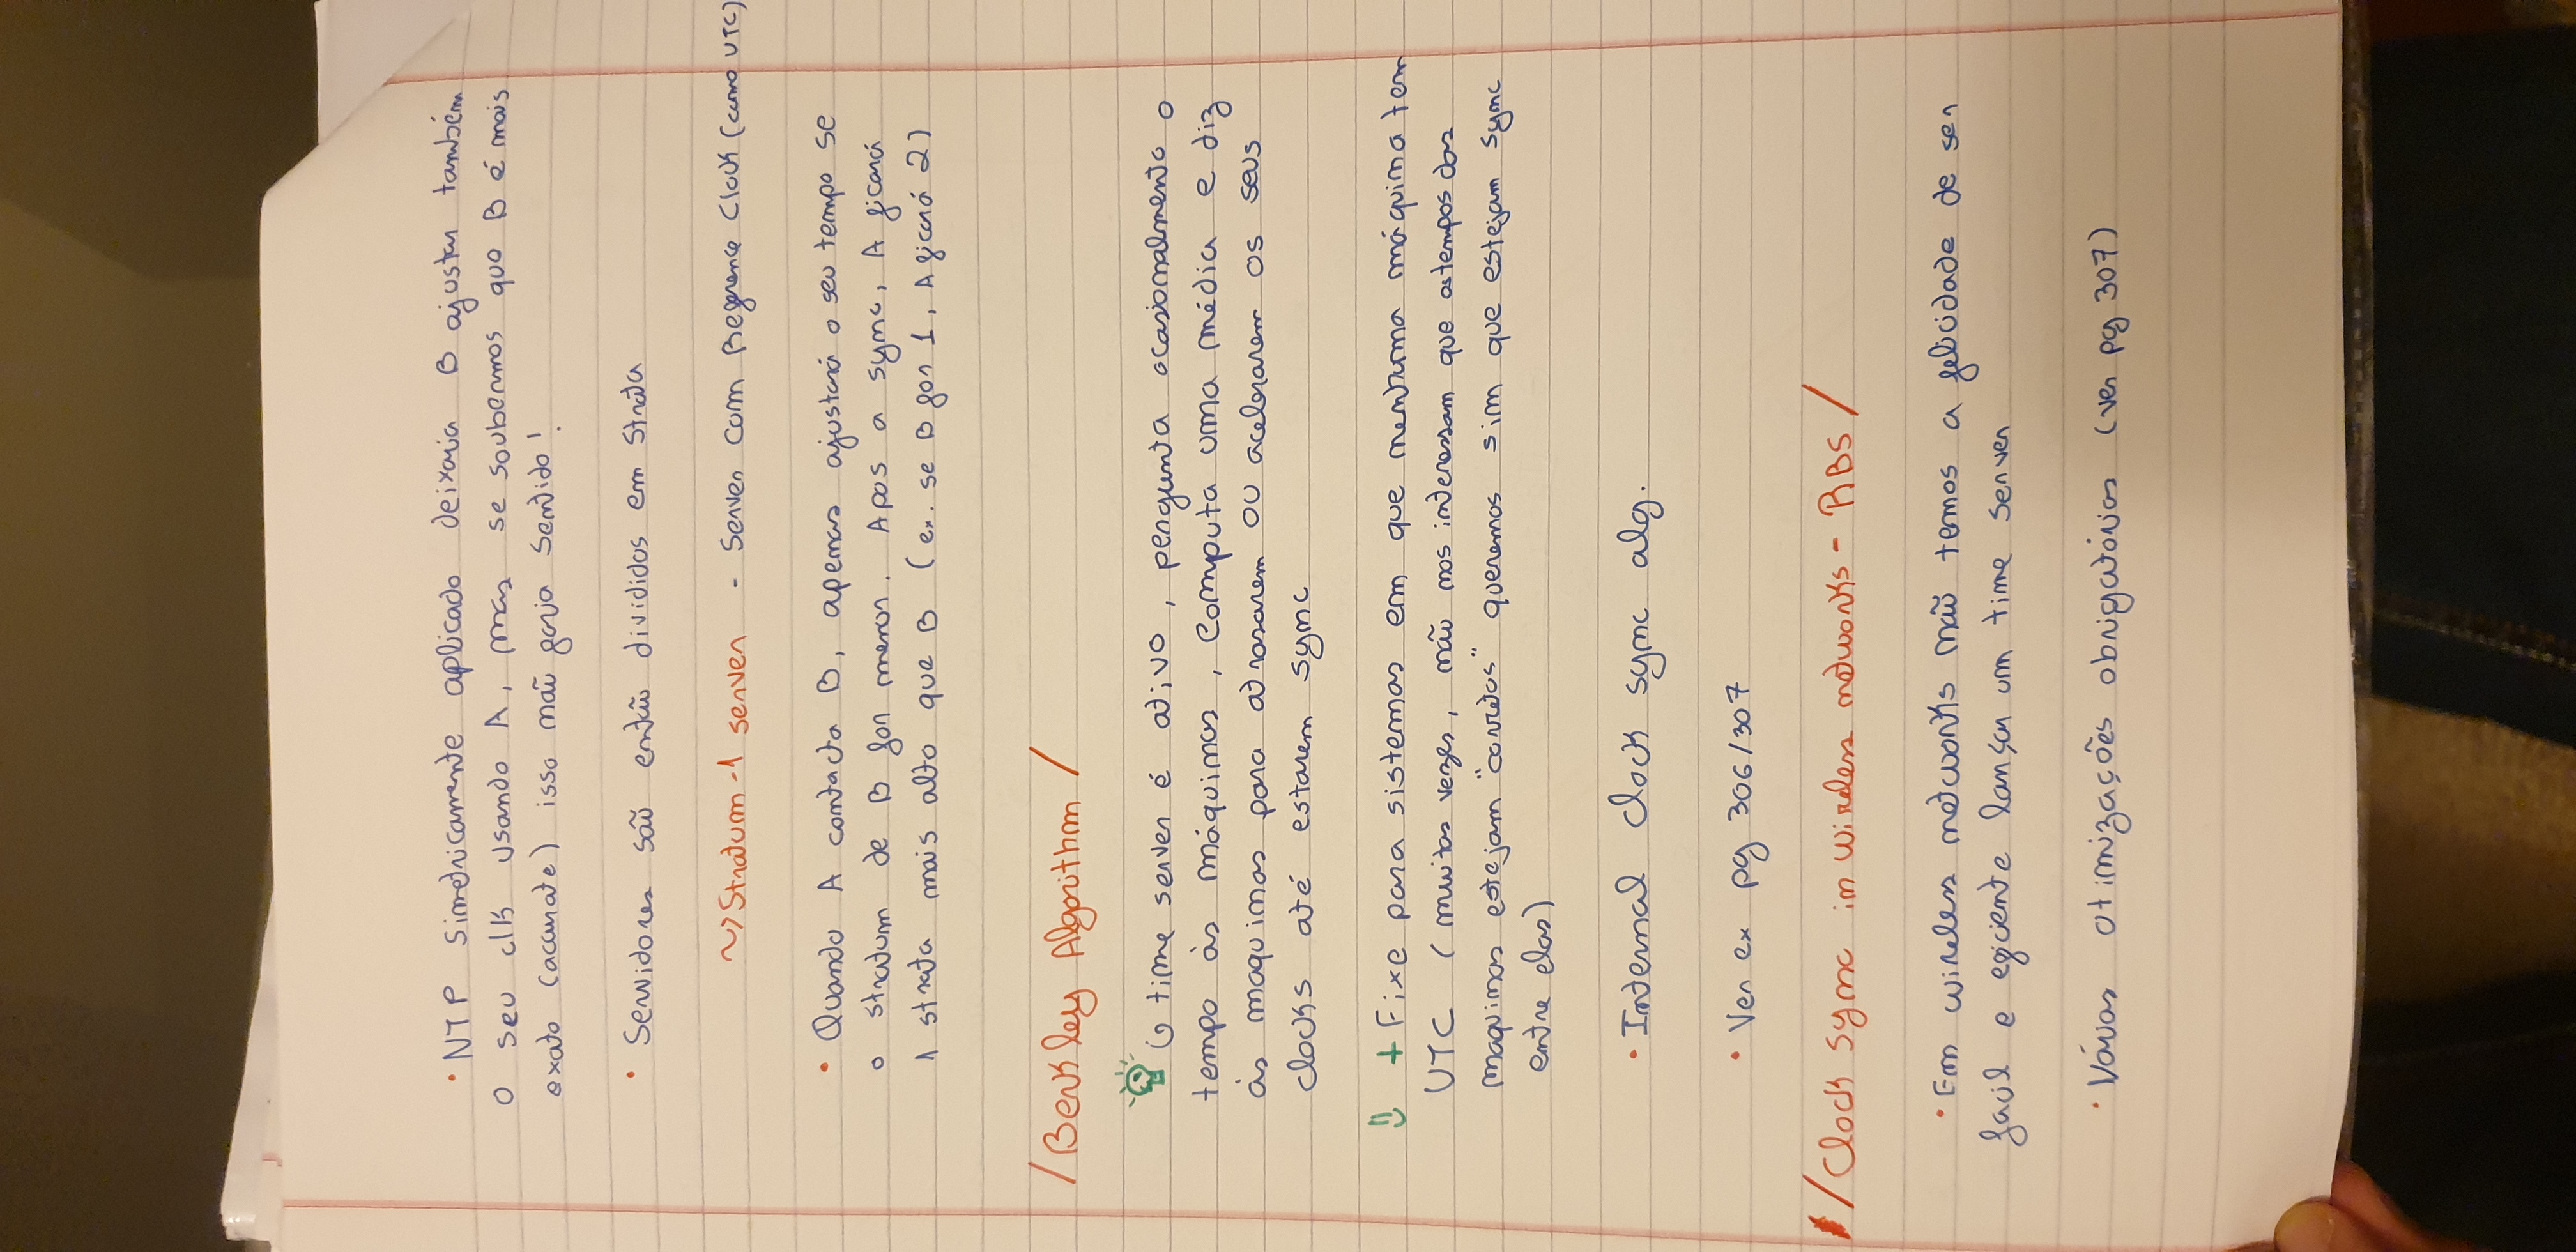 • NTP simetricamente aplicado deixaria B ajustar também
o seu clk usando A, mas se soubermos que B é mais
exato (accurate) isso não faria sentido!
• Servidores são então divididos em strata
~> Stratum-1 server - Server com Reference Clock (como UTC)
• Quando A contacta B, apenas ajustará o seu tempo se
o stratum de B for menor. Apos a sync, A ficará
1 strata mais alto que B (ex. se B for 1, A ficará 2)
/Berkley Algorithm/
O time server é ativo, pergunta ocasionalmente o
tempo às máquinas, computa uma média e diz
às maquinas para atrasarem ou acelerarem os seus
clocks até estarem sync
+ Fixe para sistemas em que nenhuma máquina tem
UTC (muitas vezes, não nos interessam que os tempos das
maquinas estejam "corretos" queremos sim que estejam sync
entre elas)
• Internal clock sync alg.
• Ver ex pg 306/307
/Clock sync in wireless networks - RBS/
• Em wireless networks não temos a felicidade de ser
facil e eficiente lançar um time server
• Várias otimizações obrigatórias (ver pg 307)